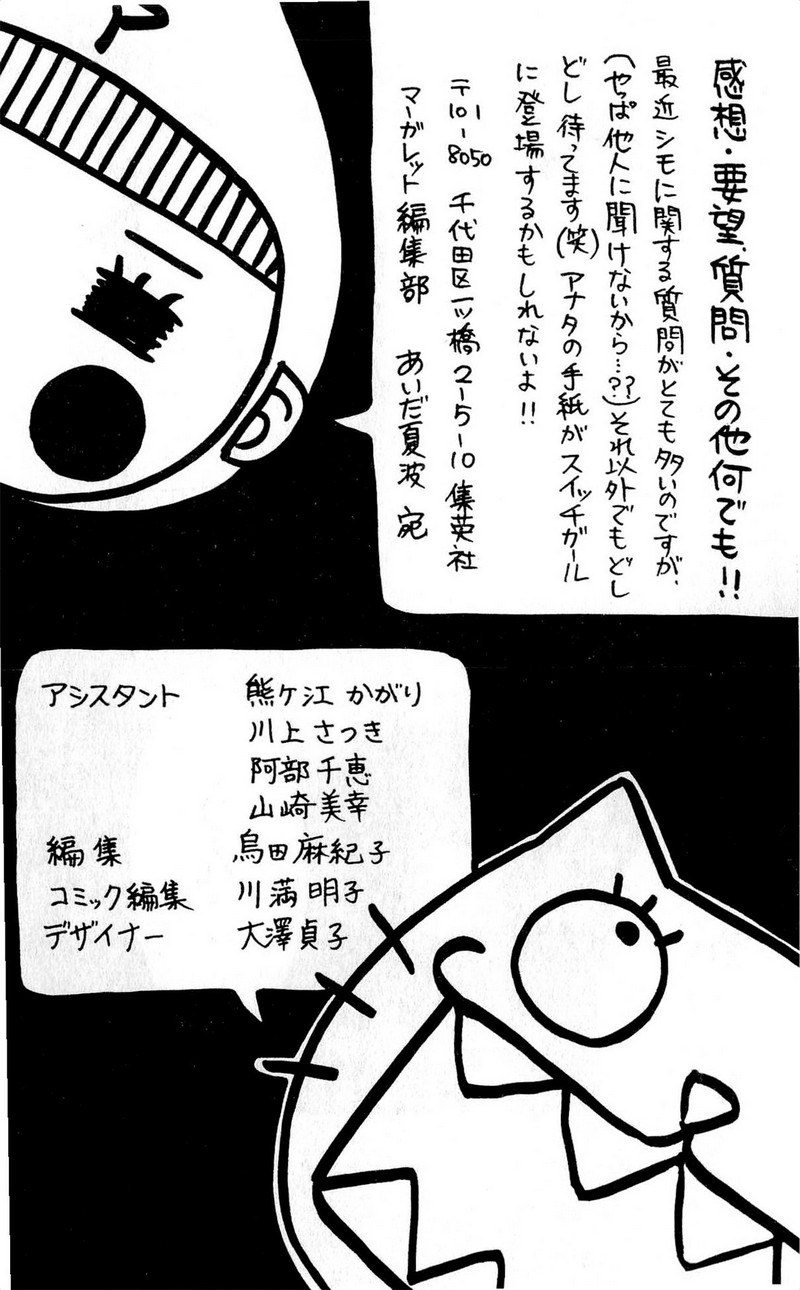 感想・要望、質問・その他何でも!!
最近シモに関する質問がとても多いのですが、
(やっぱ他人に聞けないから…??)それ以外でもどし
どし待ってます(笑)アナタの手紙がスイッチガール
に登場するかもしれないよ!!
〒101-8050 千代田区一ツ橋2-5-10 集英社
マーガレット編集部 あいだ夏波 宛
アシスタント 熊ケ江 かがり
川上 さつき
阿部 千恵
山崎 美幸
編集 鳥田 麻紀子
コミック編集 川満 明子
デザイナー 大澤 貞子